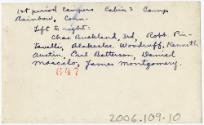 1st period Campers Cabin 3 Camp
Rainbow, Conn.
Left to right -
Chas Buckland, 3rd, Robt. Pin-
Blakeslee Woodruff, Kenneth
Austin, Carl Batterson, Daniel
James Montgomery.
647
2006.109.10